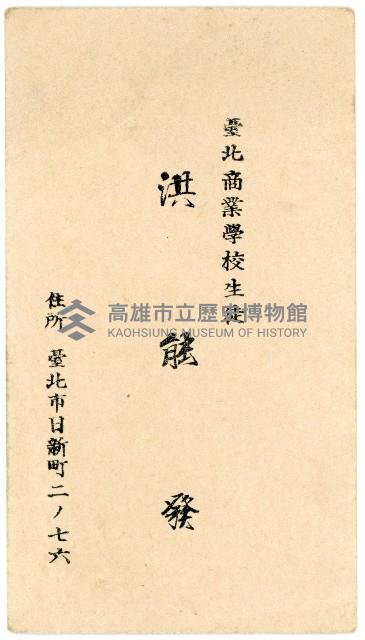 臺北商業學校生徒
洪能發
住所 臺北市日新町二ノ七六
高雄市立歷史博物館
KAOHSIUNG MUSEUM OF HISTORY